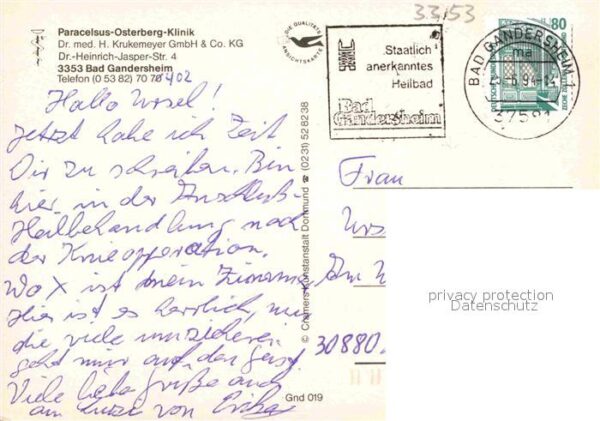 33,53
Paracelsus-Osterberg-Klinik
Dr. med. H. Krukemeyer GmbH & Co. KG
Dr.-Heinrich-Jasper-Str. 4
3353 Bad Gandersheim
Telefon (0 53 82) 70 70
402
DIE QUALITÄTS
ANSICHTSKARTE
Staatlich
anerkanntes
Heilbad
Bad
Gandersheim
BAD GANDERSHEIM 1
ma
37581
80
Hallo Ursel!
Jetzt habe ich Zeit
Dir zu schreiben. Bin
hier in der
nach
der Knieoperation.
Wo X ist mein Zimmer
Hier ist es herrlich, nur
die viele
geht mir auf den Geist
Viele liebe Grüße auch
an von Erika
© Cramers Kunstanstalt Dortmund (0231) 52 82 38
Frau
Urs
Am
30880
privacy protection
Datenschutz
Gnd 019